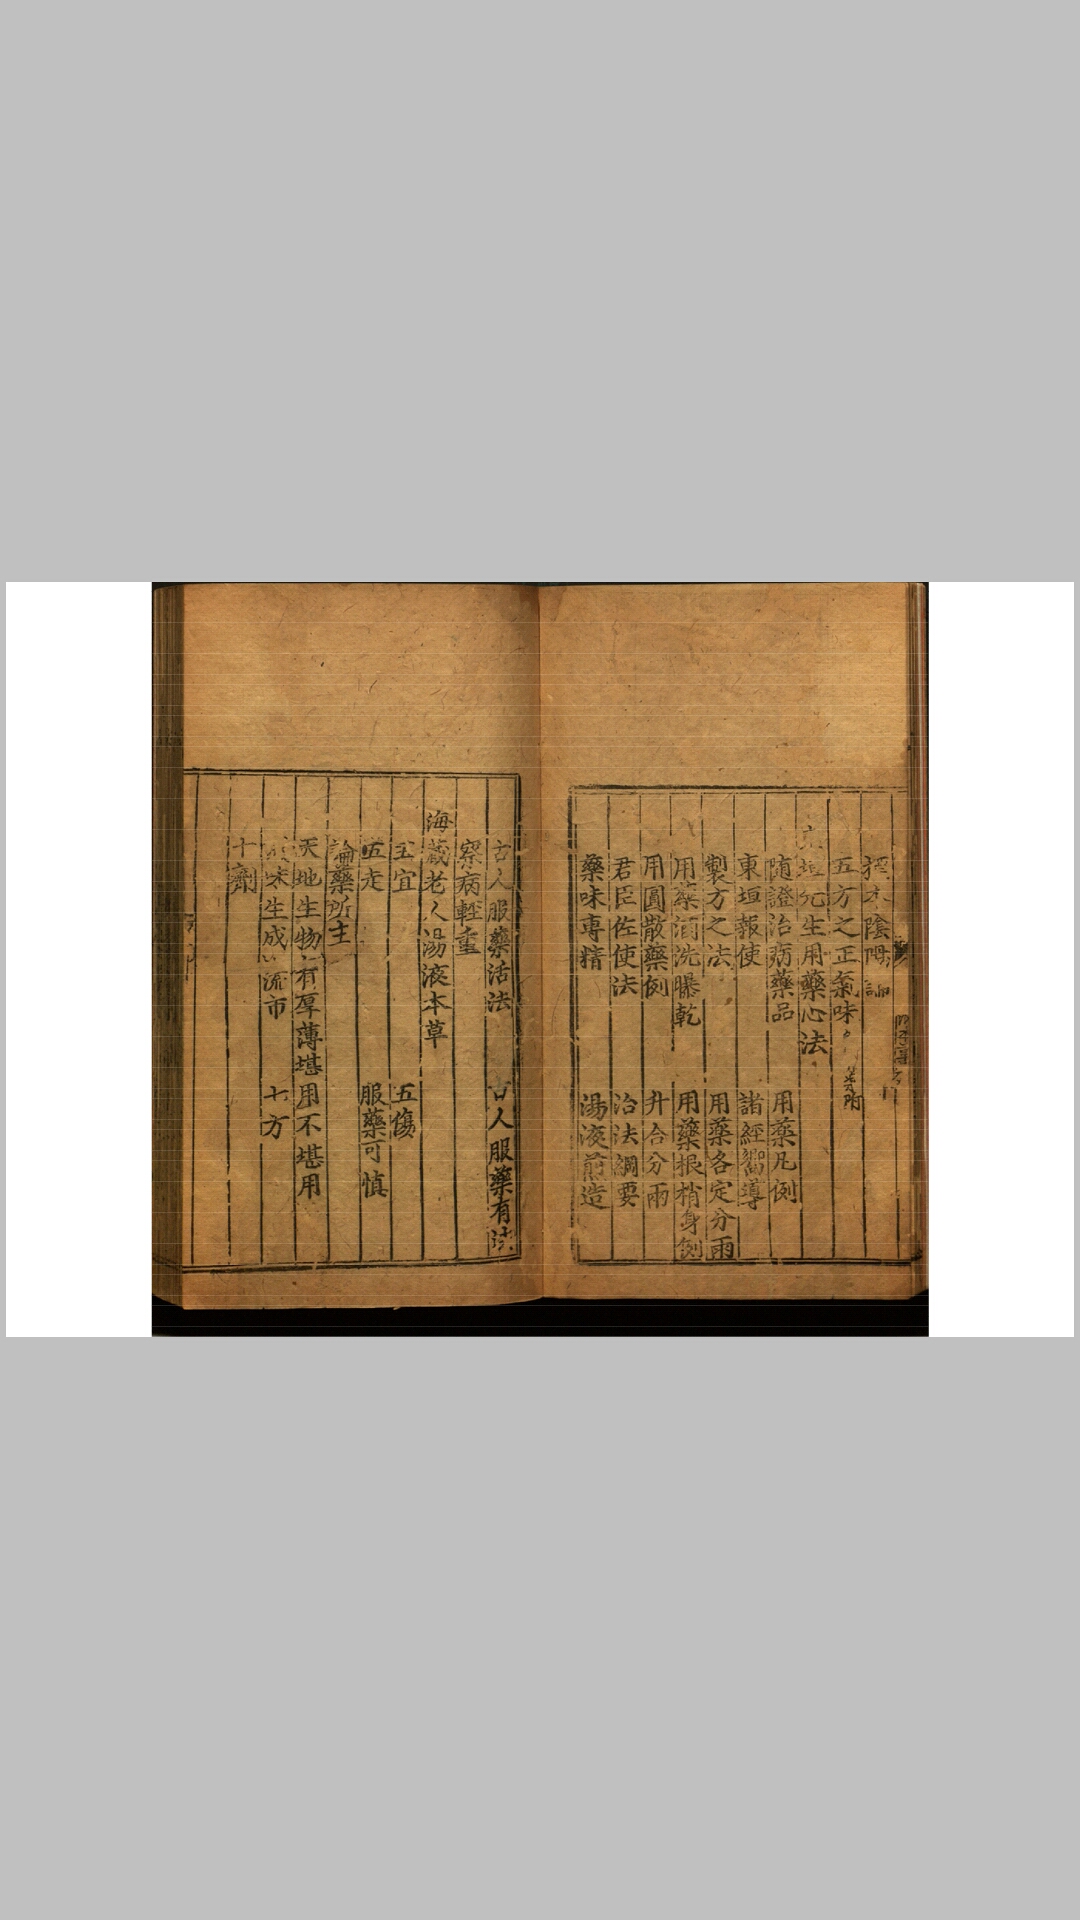 陰陽論
五方之正氣味
垣先生用藥心法
隨證治病藥品　用藥凡例
東垣報使　諸經嚮導
製方之法　用藥各定分兩
用藥酒洗曝乾　用藥根梢身例
用圓散藥例　升合分兩
君臣佐使法　治法綱要
藥味專精　湯液煎造
古人服藥活法　古人服藥有法
察病輕重
海藏老人湯液本草
五宜　五傷
五走　服藥可慎
論藥所主
天地生物有厚薄堪用不堪用
味生成流市　七方
十劑